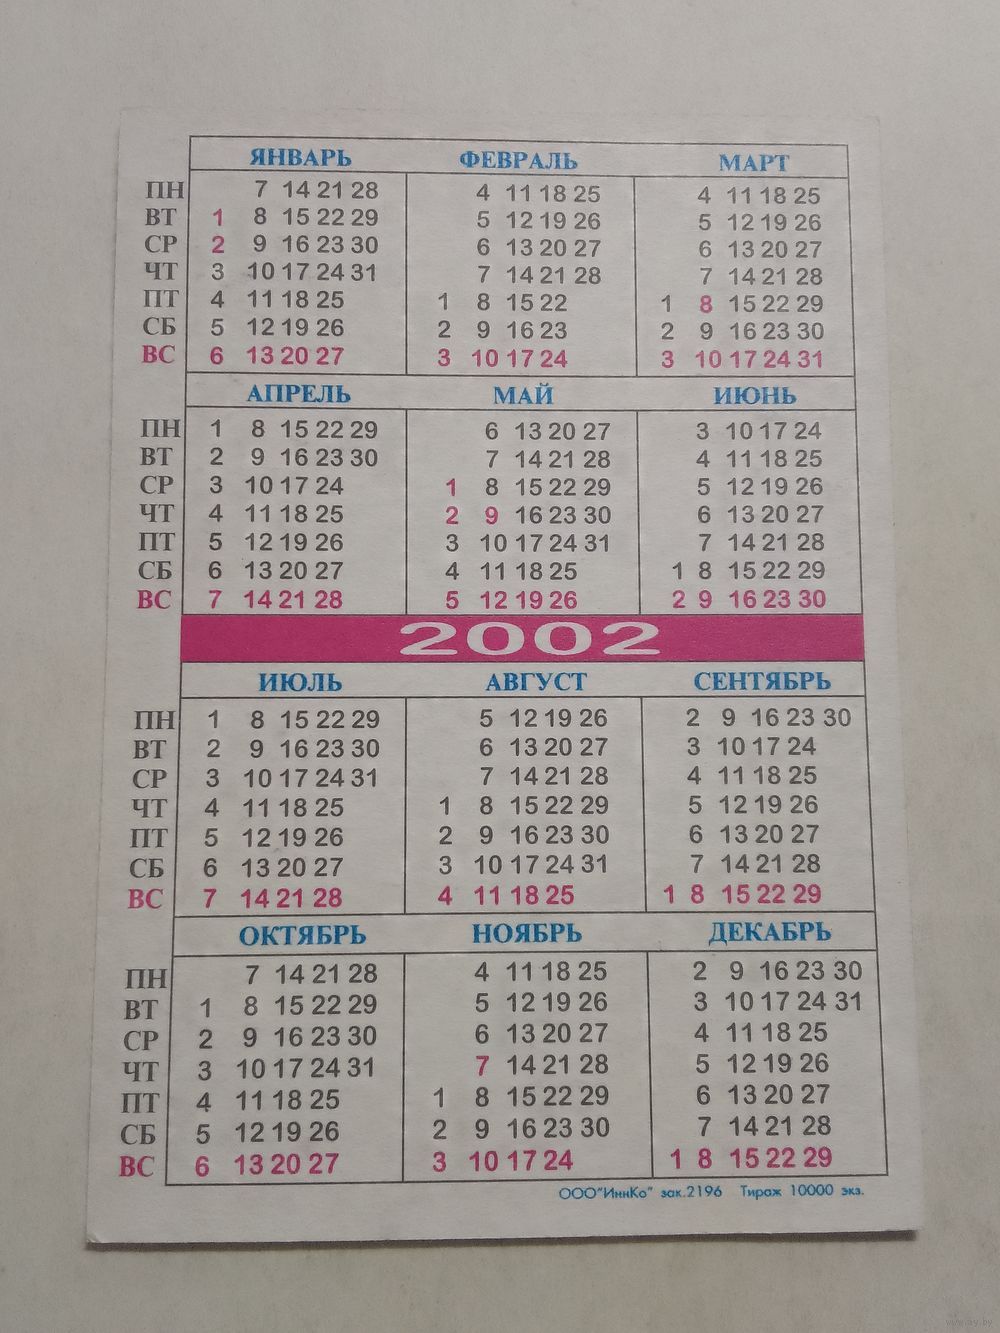 ЯНВАРЬ ФЕВРАЛЬ МАРТ
ПН 7 14 21 28 4 11 18 25 4 11 18 25
ВТ 1 8 15 22 29 5 12 19 26 5 12 19 26
СР 2 9 16 23 30 6 13 20 27 6 13 20 27
ЧТ 3 10 17 24 31 7 14 21 28 7 14 21 28
ПТ 4 11 18 25 1 8 15 22 1 8 15 22 29
СБ 5 12 19 26 2 9 16 23 2 9 16 23 30
ВС 6 13 20 27 3 10 17 24 3 10 17 24 31
АПРЕЛЬ МАЙ ИЮНЬ
ПН 1 8 15 22 29 6 13 20 27 3 10 17 24
ВТ 2 9 16 23 30 7 14 21 28 4 11 18 25
СР 3 10 17 24 1 8 15 22 29 5 12 19 26
ЧТ 4 11 18 25 2 9 16 23 30 6 13 20 27
ПТ 5 12 19 26 3 10 17 24 31 7 14 21 28
СБ 6 13 20 27 4 11 18 25 1 8 15 22 29
ВС 7 14 21 28 5 12 19 26 2 9 16 23 30
2002
ИЮЛЬ АВГУСТ СЕНТЯБРЬ
ПН 1 8 15 22 29 5 12 19 26 2 9 16 23 30
ВТ 2 9 16 23 30 6 13 20 27 3 10 17 24
СР 3 10 17 24 31 7 14 21 28 4 11 18 25
ЧТ 4 11 18 25 1 8 15 22 29 5 12 19 26
ПТ 5 12 19 26 2 9 16 23 30 6 13 20 27
СБ 6 13 20 27 3 10 17 24 31 7 14 21 28
ВС 7 14 21 28 4 11 18 25 1 8 15 22 29
ОКТЯБРЬ НОЯБРЬ ДЕКАБРЬ
ПН 7 14 21 28 4 11 18 25 2 9 16 23 30
ВТ 1 8 15 22 29 5 12 19 26 3 10 17 24 31
СР 2 9 16 23 30 6 13 20 27 4 11 18 25
ЧТ 3 10 17 24 31 7 14 21 28 5 12 19 26
ПТ 4 11 18 25 1 8 15 22 29 6 13 20 27
СБ 5 12 19 26 2 9 16 23 30 7 14 21 28
ВС 6 13 20 27 3 10 17 24 1 8 15 22 29
ООО"ИннКо" зак.2196 Тираж 10000 экз.
www.ay.by